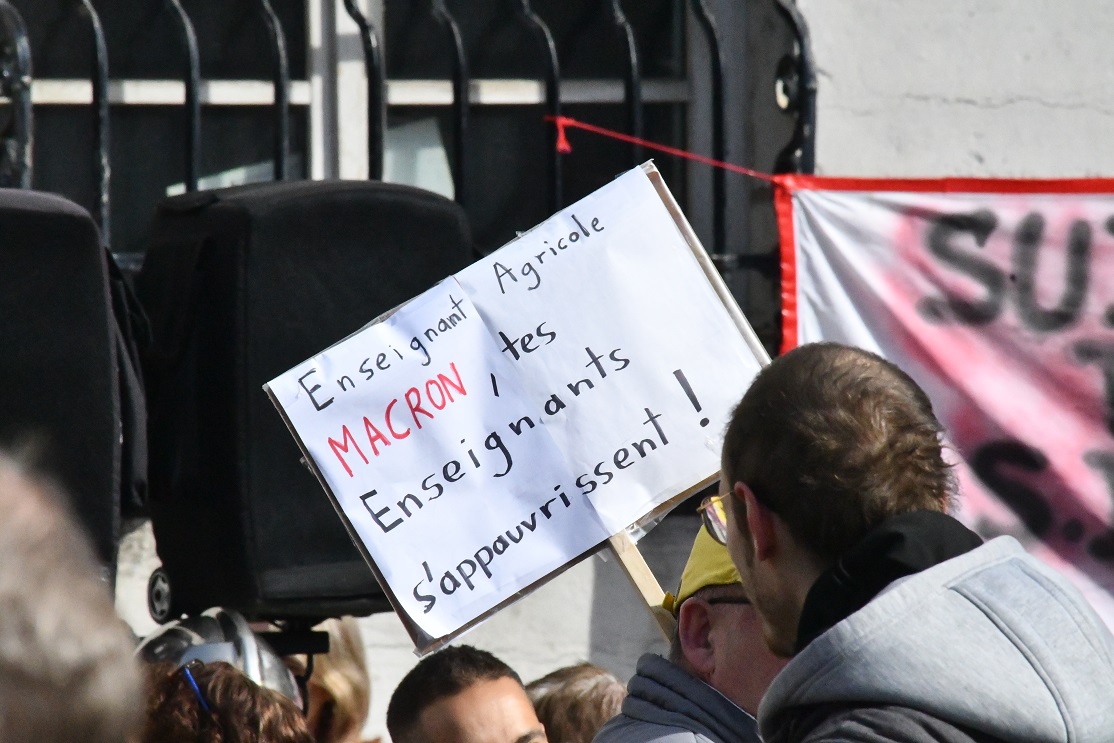 Enseignant Agricole
MACRON, tes
Enseignants
s'appauvrissent !